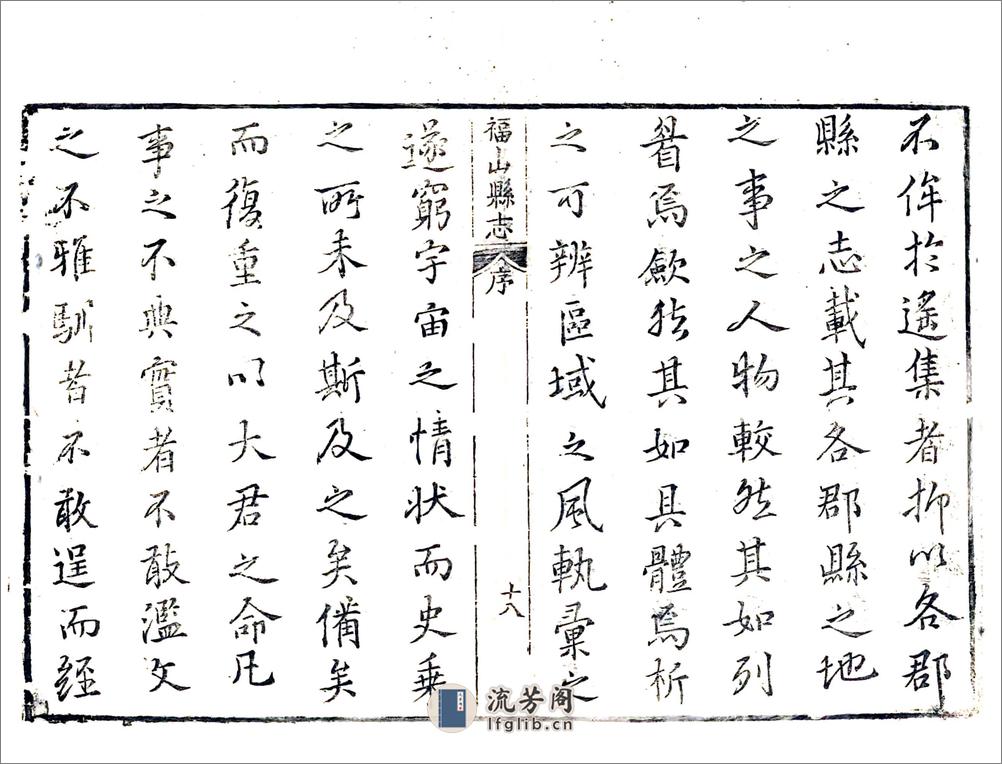 不侔於遙集者抑以各郡
縣之志載其各郡縣之地
之事之人物較然其如列
眉焉歙然其如具體焉析
之可辨區域之風執彙之
福山縣志
序
十八
遂窮宇宙之情狀而史乗
之所未及斯及之矣備矣
而復重之以大君之命凡
事之不典實者不敢濫文
之不雅馴者不敢逞而經
流芳阁
lfglib.cn